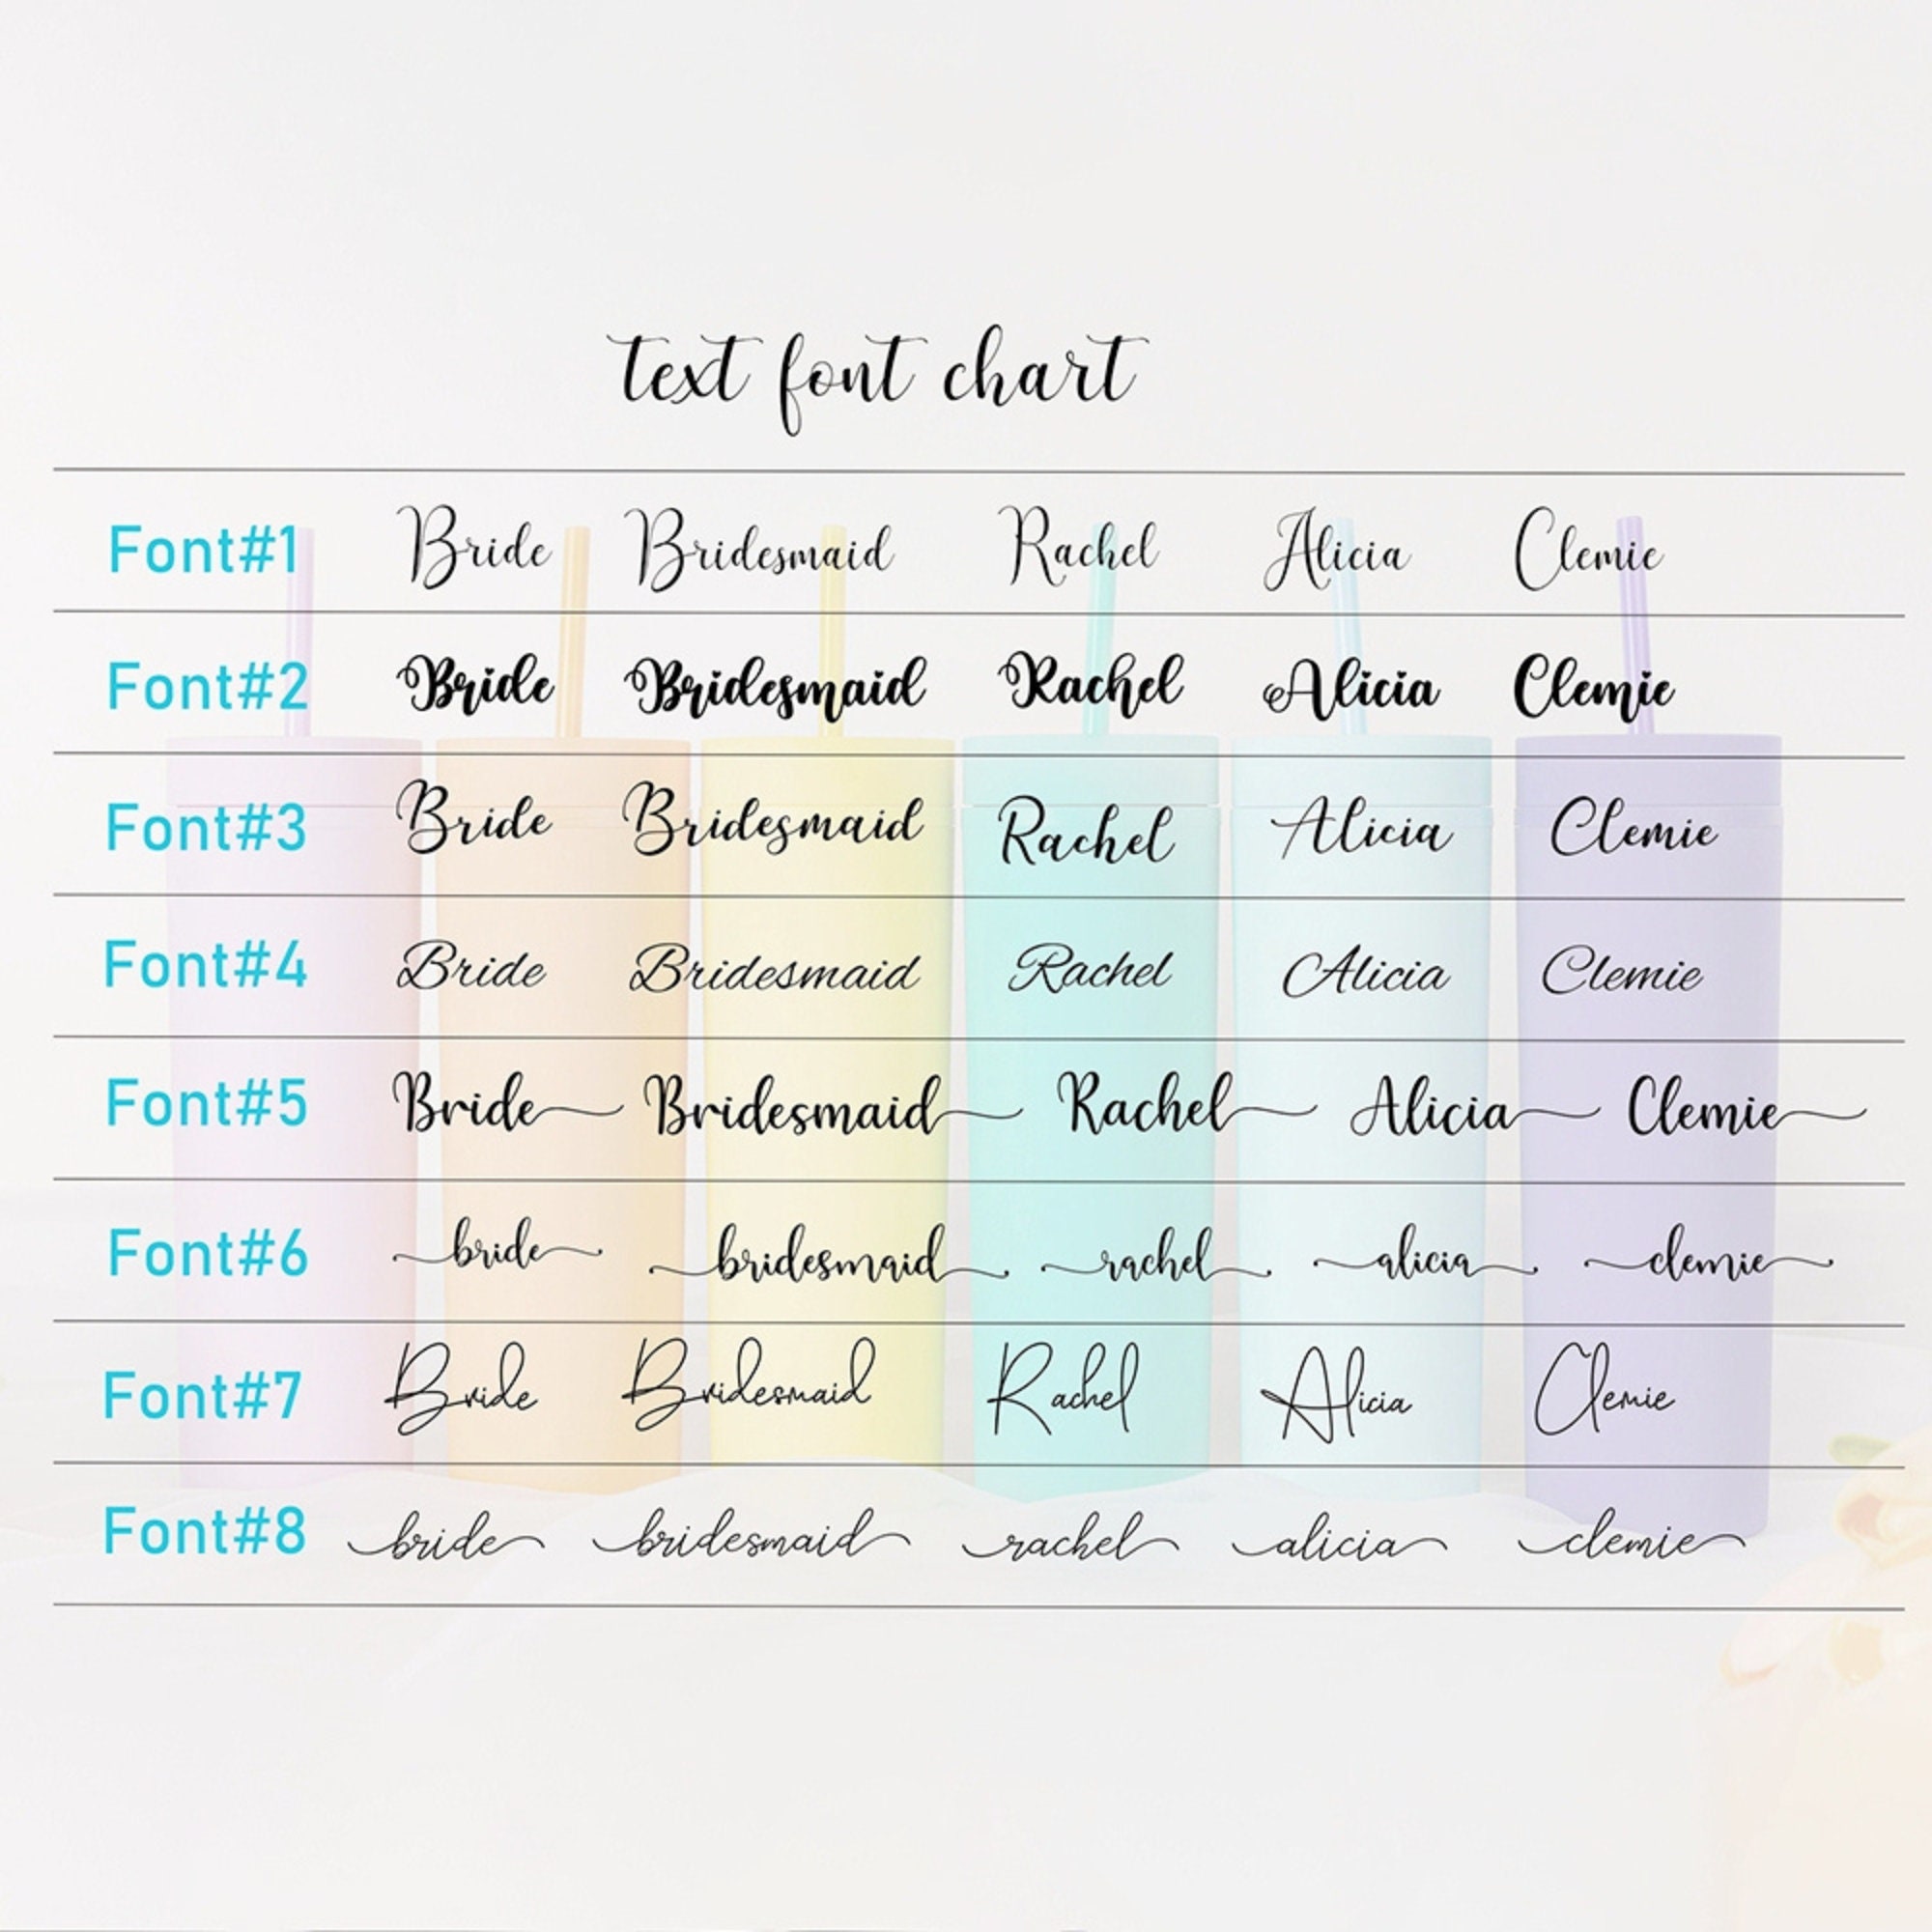 text font chart
Font#1 Bride Bridesmaid Rachel Alicia Clemie
Font#2 Bride Bridesmaid Rachel Alicia Clemie
Font#3 Bride Bridesmaid Rachel Alicia Clemie
Font#4 Bride Bridesmaid Rachel Alicia Clemie
Font#5 Bride Bridesmaid Rachel Alicia Clemie
Font#6 bride bridesmaid rachel alicia clemie
Font#7 Bride Bridesmaid Rachel Alicia Clemie
Font#8 bride bridesmaid rachel alicia clemie